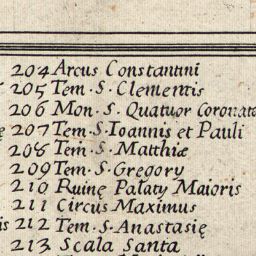 204 Arcus Constantini
205 Tem · S · Clementis
206 Mon · S · Quatuor Coronata
207 Tem · S · Ioannis et Pauli
208 Tem · S · Matthiæ
209 Tem · S · Gregory
210 Ruinę Palaty Maioris
211 Circus Maximus
212 Tem · S · Anastasię
213 Scala Santa